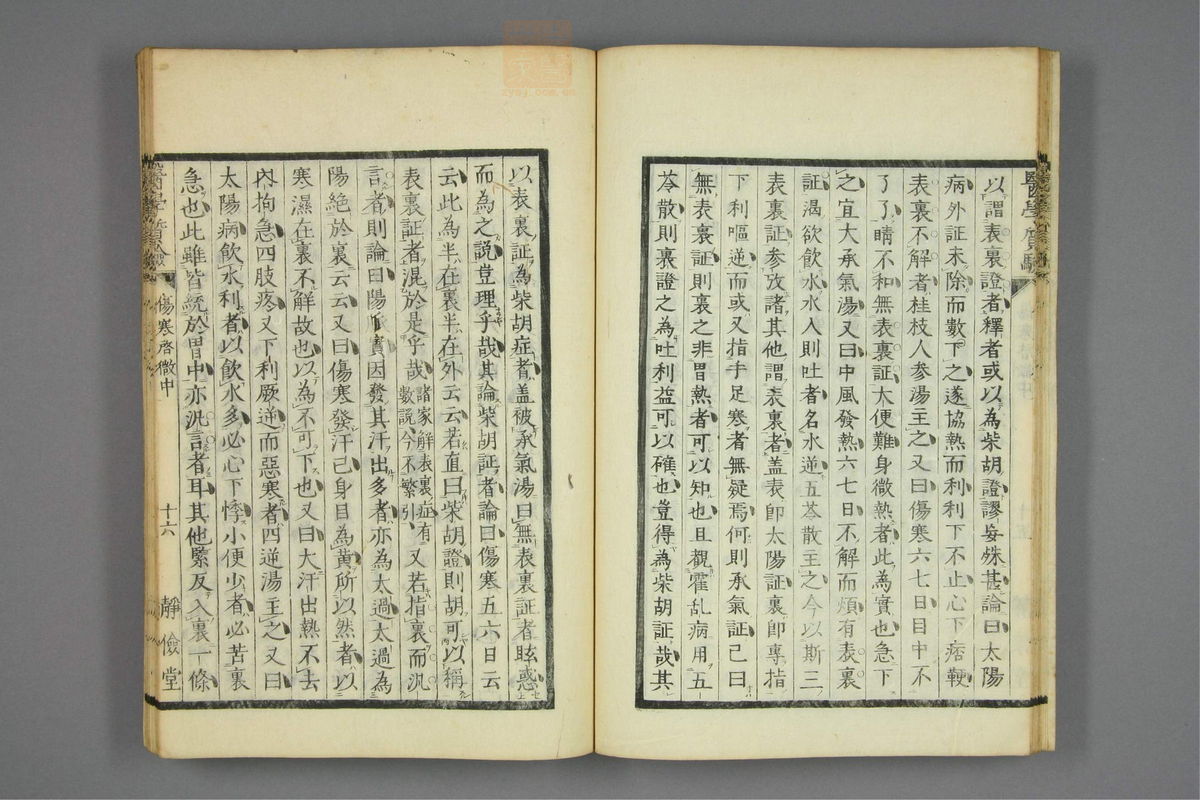 以謂表裏證者釋者或以為柴胡證謬妄殊甚論曰太陽
病外証未除而數下之遂協熱而利利下不止心下痞鞕
表裏不解者桂枝人參湯主之又曰傷寒六七日目中不
了了睛不和無表裏証大便難身微熱者此為實也急下
之宜大承氣湯又曰中風發熱六七日不解而煩有表裏
証渴欲飲水水入則吐者名水逆五苓散主之今以斯三
表裏証參攷諸其他謂表裏者蓋表即太陽証裏即專指
下利嘔逆而或又指手足寒者無疑焉何則承氣証已曰
無表裏証則裏之非胃熱者可以知也且觀霍乱病用五
苓散則裏證之為吐利益可以確也豈得為柴胡証哉其
以表裏証為柴胡症者蓋被承氣湯曰無表裏証者眩惑
而為之説豈理乎哉其論柴胡証者論曰傷寒五六日云
云此為半在裏半在外云云若直曰柴胡證則胡可以稱
表裏証者混於是乎哉諸家解表裏症有數說今不繁引又若指裏而汎
言者則論曰陽實因發其汗出多者亦為太過太過為
陽絕於裏云云又曰傷寒發汗已身目為黃所以然者以
寒濕在裏不解故也以為不可下也又曰大汗出熱不去
內拘急四肢疼又下利厥逆而惡寒者四逆湯主之又曰
太陽病飲水利者以飲水多必心下悸小便少者必苦裏
急也此雖皆統於胃中亦汎言者耳其他緊反入裏一條
醫學質驗
傷寒啓微中
十六
靜儉堂